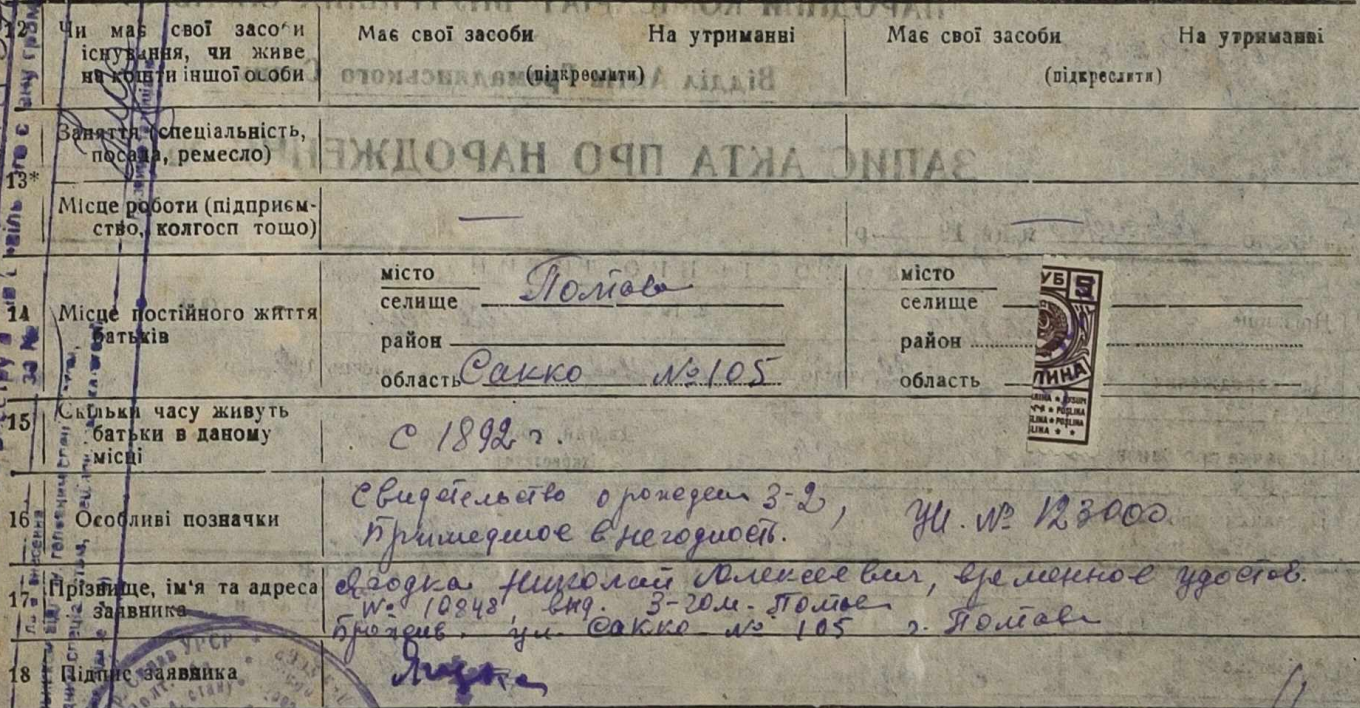 12 Чи має свої засоби існування, чи живе на кошти іншої особи
Має свої засоби На утриманні
(підкреслити)
Має свої засоби На утриманні
(підкреслити)
13*
Заняття (спеціальність, посада, ремесло)
Місце роботи (підприємство, колгосп тощо)
— —
14 Місце постійного життя батьків
місто
селище Полтава
район
область Сакко № 105
місто
селище
район
область
15 Скільки часу живуть батьки в даному місці
с 1892 г.
16 Особливі позначки
Свидетельство о рожден 3-2, № 123000
Пришедшое в негодность.
17 Прізвище, ім'я та адреса заявника
Ягодка Николай Алексеевич, временное удостов.
№ 10848 выд. 3-гом.
Прожив. ул. Сакко № 105 г. Полтава
18 Підпис заявника
ЗАПИС АКТА ПРО НАРОДЖЕН
POSLINA